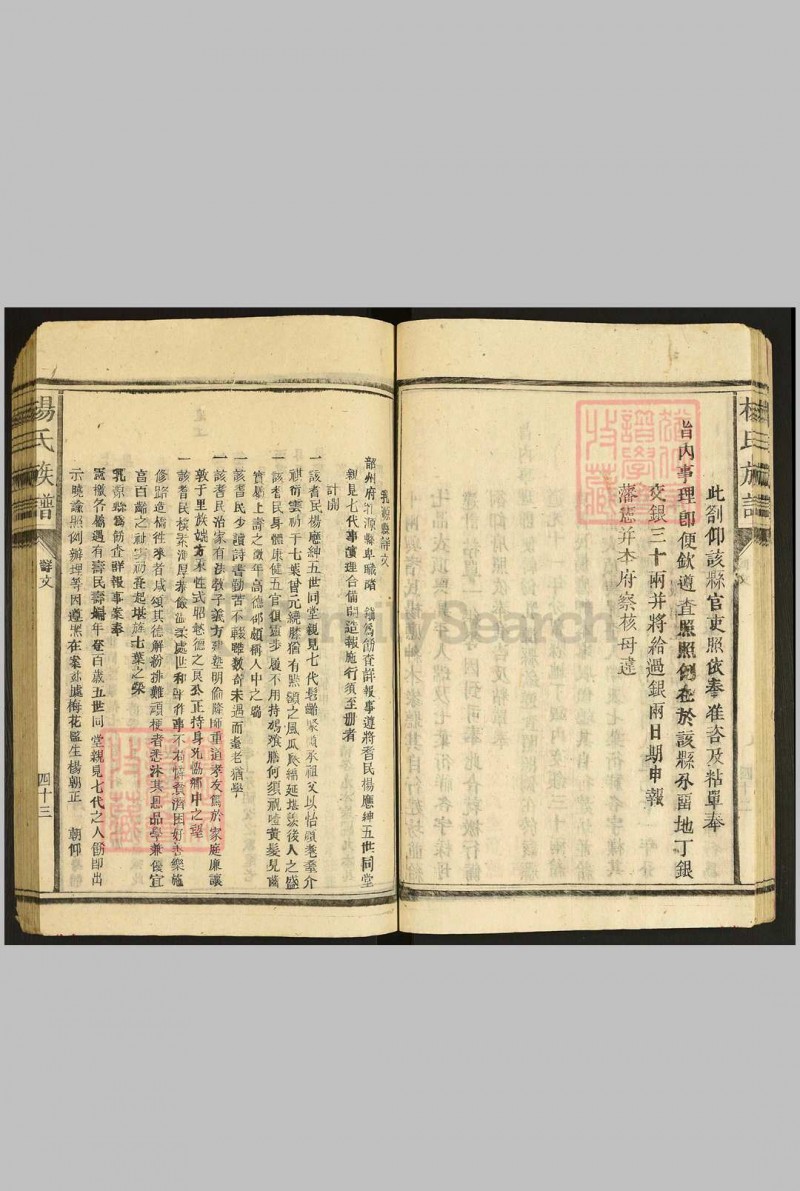 楊氏族譜
此劄仰該縣官吏照依奉准咨及粘單奉
旨內事理即便欽遵查照照例在於該縣永畱地丁銀
支銀三十兩并將給過銀兩日期申報
藩憲并本府察核毋違
乳源縣詳文
韶州府乳源縣卑職 為飭查詳報事遵將耆民楊應紳五世同堂
親見七代事實理合備開造報施行須至冊者
計開
一該耆民楊應紳五世同堂親見七代髫齡承祖父以怡顏耄耋介
祺衍雲礽于七葉曾元繞膝猶有熙皞之風瓜瓞綿延堪娛後人之盛
一該耆民身體康健五官俱靈步履不用持鳩殯膳何須祝噎黃髮兒齒
實屬上壽之徵年高德邵頗稱人中之瑞
一該耆民少讀詩書勤苦不輟雖數奇未遇而耄老猶學
一該耆民治家有法教子義方建塾明倫隆師重道孝友篤於家庭廉讓
敦于里族端方本性式昭懿德之良公正持身允協輿中之望
一該耆民樸素渾厚恭儉溫柔處世和睦作事不苟憐貧濟困好善樂施
修路造橋往來者咸頌其德解紛排難頑梗者悉沐其恩品學兼優宜
富百齡之祉雲礽疊起堪旌七葉之榮
乳源縣為飭查詳報事案奉
憲檄各屬遇有壽民壽婦年登百歲五世同堂親見七代之人飭即出
示曉諭照例辦理等因遵照在案茲據梅花監生楊朝正 朝仰
楊氏族譜
詳文
四十三
Family Search